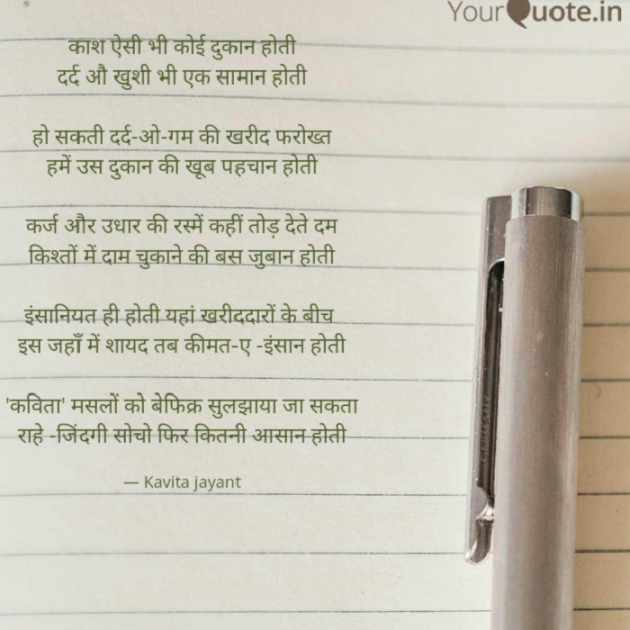 YourQuote.in
काश ऐसी भी कोई दुकान होती
दर्द औ खुशी भी एक सामान होती
हो सकती दर्द-ओ-गम की खरीद फरोख्त
हमें उस दुकान की खूब पहचान होती
कर्ज और उधार की रस्में कहीं तोड़ देते दम
किश्तों में दाम चुकाने की बस जुबान होती
इंसानियत ही होती यहां खरीददारों के बीच
इस जहाँ में शायद तब कीमत-ए -इंसान होती
'कविता' मसलों को बेफिक्र सुलझाया जा सकता
राहे -जिंदगी सोचो फिर कितनी आसान होती
— Kavita jayant